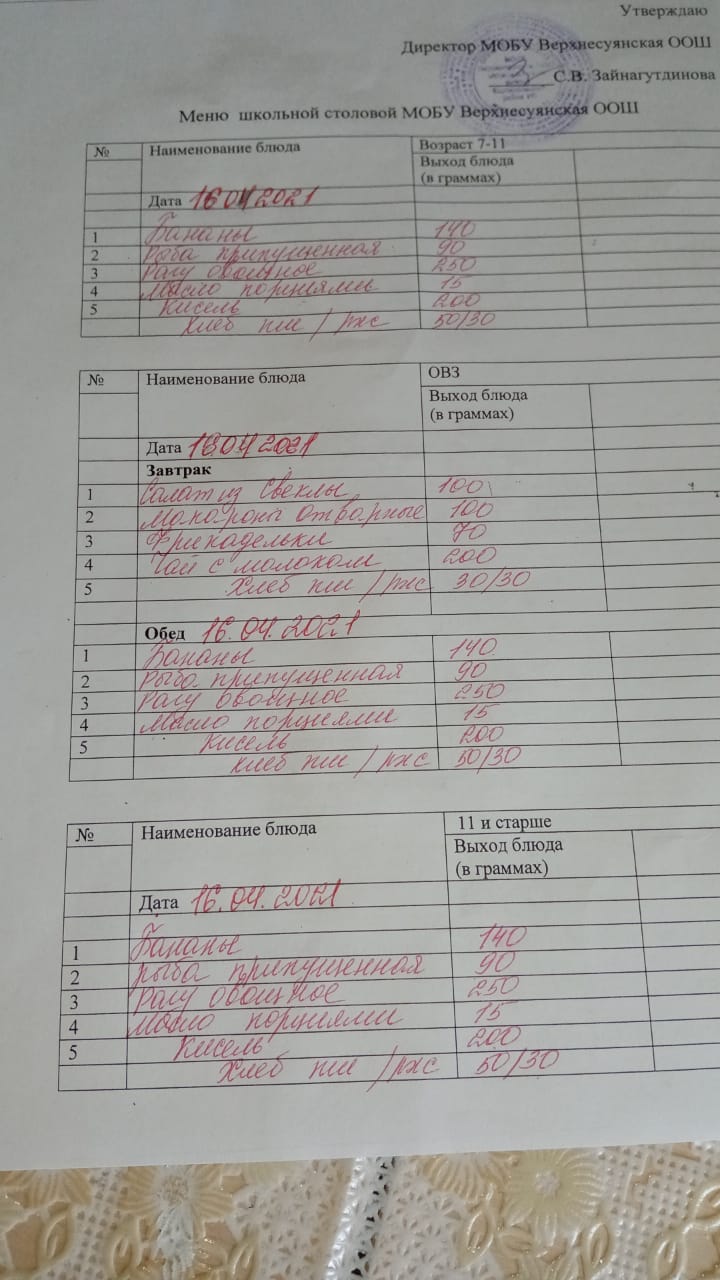 Утверждаю
Директор МОБУ Верхнесуянская ООШ
С.В. Зайнагутдинова
Меню школьной столовой МОБУ Верхнесуянская ООШ
№ Наименование блюда Возраст 7-11
Выход блюда
(в граммах)
Дата 16 04 2021
1 Бананы 140
2 Рыба припущенная 90
3 Рагу овощное 250
4 Масло порциями 15
5 Кисель 200
Хлеб пш / рж 50/30
№ Наименование блюда ОВЗ
Выход блюда
(в граммах)
Дата 16.04 2021
Завтрак
1 Салат из свеклы 100
2 Макароны отварные 100
3 Фрикадельки 70
4 Чай с молоком 200
5 Хлеб пш / рж 30/30
Обед 16.04.2021
1 Бананы 140
2 Рыба припущенная 90
3 Рагу овощное 250
4 Масло порциями 15
5 Кисель 200
хлеб пш / рж 50/30
№ Наименование блюда 11 и старше
Выход блюда
(в граммах)
Дата 16.04.2021
1 Бананы 140
2 рыба припущенная 90
3 Рагу овощное 250
4 Масло порциями 15
5 Кисель 200
Хлеб пш / рж 50/30